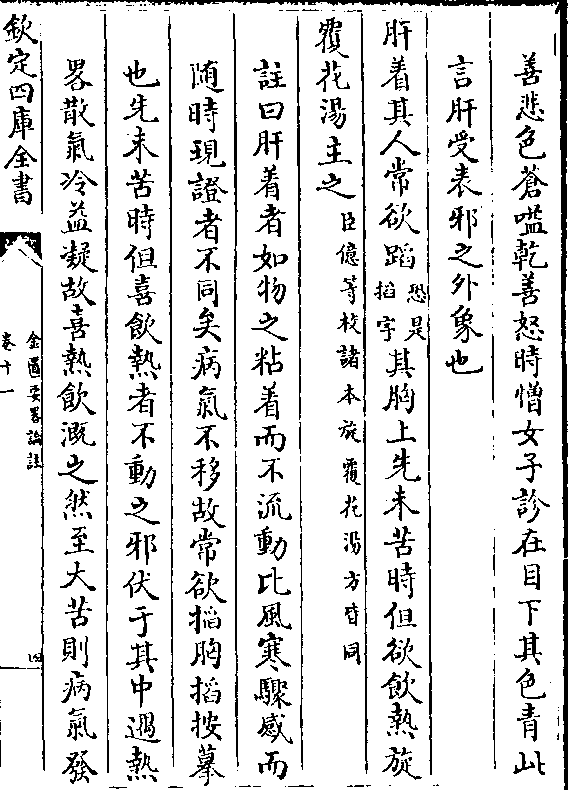 善悲色蒼嗌乾善怒時憎女子診在目下其色青此
言肝受表邪之外象也
肝着其人常欲蹈恐是掐字其胸上先未苦時但欲飲熱旋
覆花湯主之臣億等校諸本旋覆花湯方皆同
註曰肝着者如物之粘着而不流動比風寒驟感而
随時現證者不同矣病氣不移故常欲掐胸掐按摹
也先未苦時但喜飲熱者不動之邪伏于其中遇熱
畧散氣冷益凝故喜熱飲溉之然至大苦則病氣發
欽定四庫全書
金匱要畧論註
卷十一
四